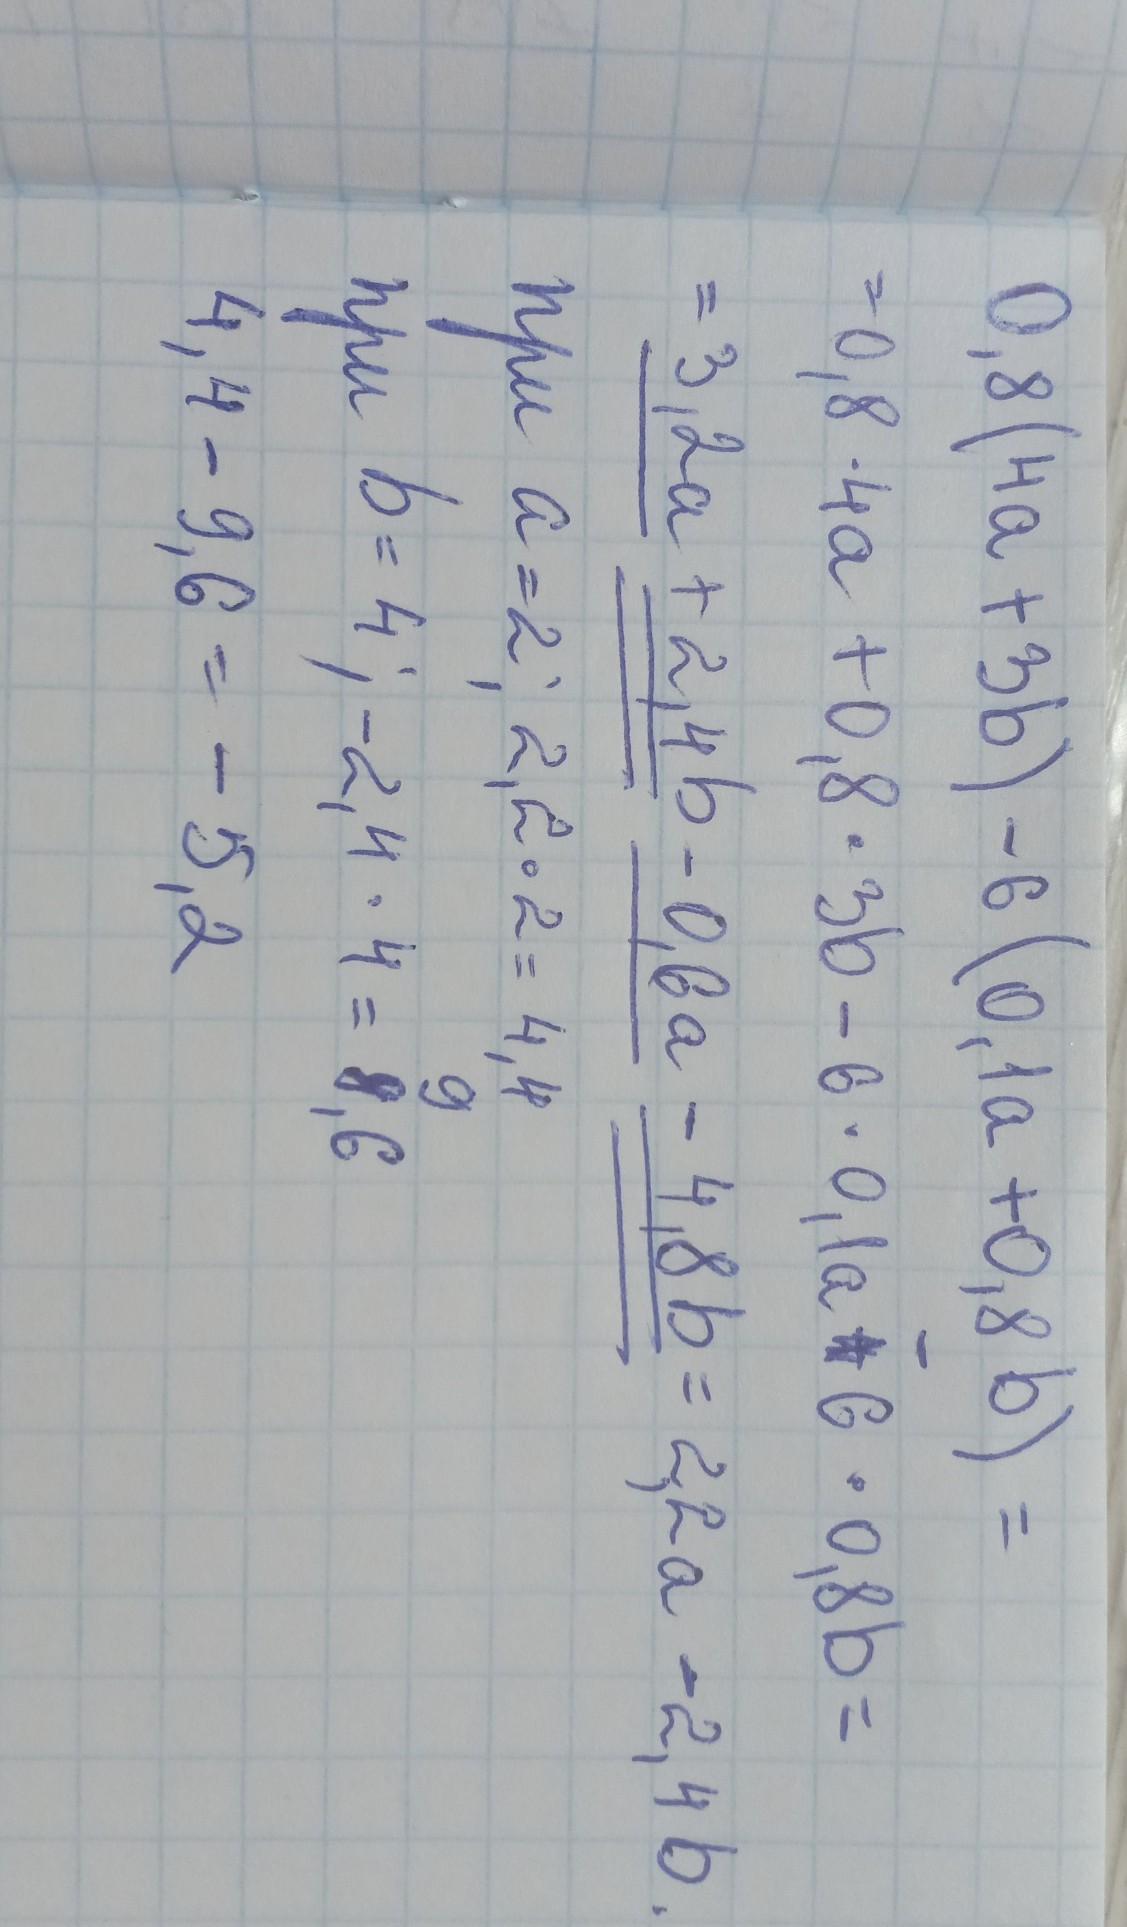 0,8(4a+3b)-6(0,1a+0,8b)=
=0,8·4a+0,8·3b-6·0,1a-6·0,8b=
=3,2a+2,4b-0,6a-4,8b=2,2a-2,4b.
при a=2; 2,2·2=4,4
при b=4; -2,4·4=9,6
4,4-9,6=-5,2